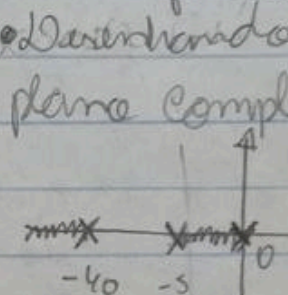 •Desenhando
plano compl
-40 -5 0